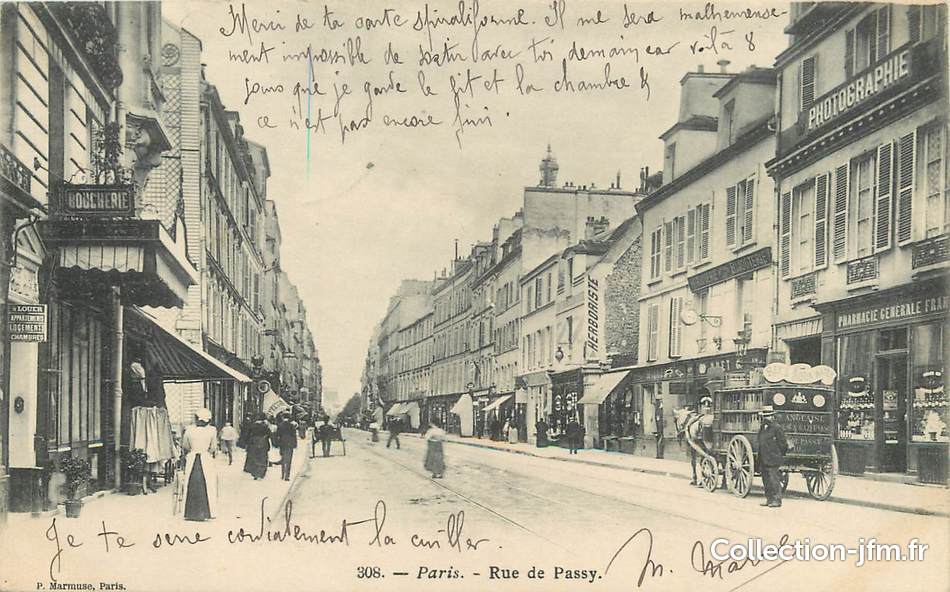 Merci de ta carte spiraliforme. Il me sera malheureuse-
ment impossible de sortir avec toi demain car voilà 8
jours que je garde le lit et la chambre &
ce n'est pas encore fini.
PHOTOGRAPHIE
BOUCHERIE
A LOUER
APPARTEMENTS
LOGEMENTS
CHAMBRES
HERBORISTE
PHARMACIE GÉNÉRALE FRA
ANGLAISE
PASSY
Je te serre cordialement la cuiller.
M. Marcel
308. — Paris. - Rue de Passy.
P. Marmuse, Paris.
Collection-jfm.fr